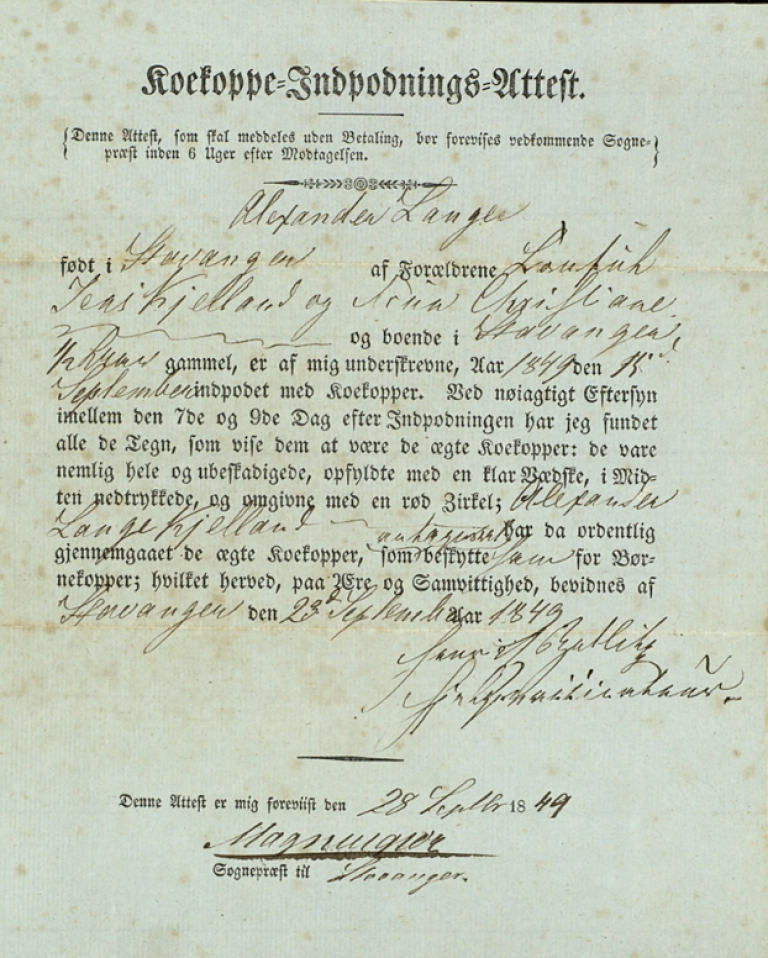 Koekoppe-Indpodnings-Attest.
Denne Attest, som skal meddeles uden Betaling, bør forevises vedkommende Sogne-
præst inden 6 Uger efter Modtagelsen.
Alexander Lange
født i Stavanger af Forældrene
Jens Kjelland og Frue Christiane
og boende i Stavanger,
gammel, er af mig underskrevne, Aar 1849 den 15d
September indpodet med Koekopper. Ved nøiagtigt Eftersyn
imellem den 7de og 9de Dag efter Indpodningen har jeg fundet
alle de Tegn, som vise dem at være de ægte Koekopper: de vare
nemlig hele og ubeskadigede, opfyldte med en klar Vædske, i Mid-
ten nedtrykkede, og omgivne med en rød Zirkel; Alexander
Lange Kjelland har da ordentlig
gjennemgaaet de ægte Koekopper, som beskytte ham for Bør-
nekopper; hvilket herved, paa Ære og Samvittighed, bevidnes af
Stavanger den 23d September Aar 1849
Denne Attest er mig foreviist den 28 Septbr 1849
Sognepræst til Stavanger.